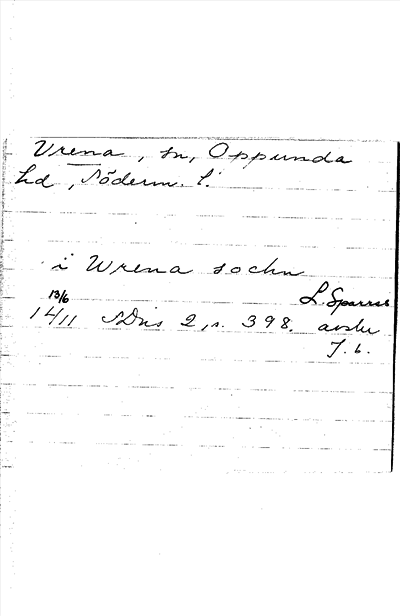 Vrena, sn, Oppunda
hd, Söderm. l.
i Wrena sochn
13/6 L. Sparres
14/11 SDns 2, s. 398. avskr
J. b.